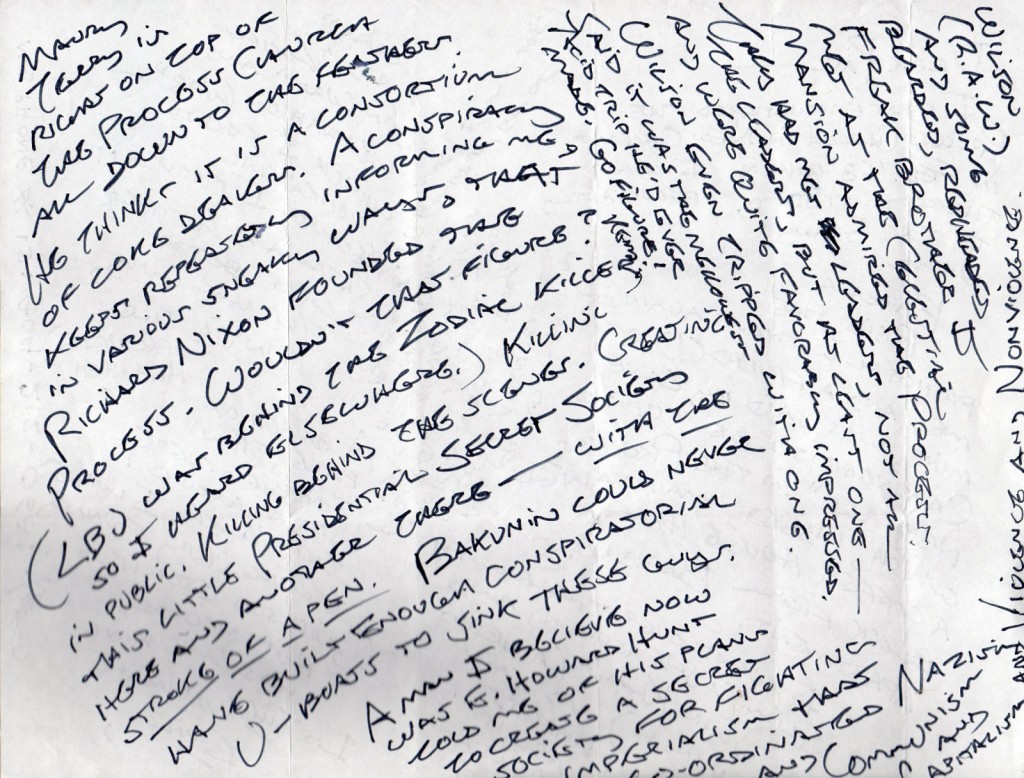 MAURY
TERRY IS
RIGHT ON TOP OF
THE PROCESS CHURCH
ALL DOWN TO THE FEATHERS.
HE THINKS IT IS A CONSORTIUM
OF COKE DEALERS. A CONSPIRACY
KEEPS REPEATEDLY INFORMING ME,
IN VARIOUS SNEAKY WAYS, THAT
RICHARD NIXON FOUNDED THE
PROCESS. WOULDN'T THAT FIGURE?
(LBJ WAS BEHIND THE ZODIAC KILLER,
SO I HEARD ELSEWHERE.) KILLING
IN PUBLIC. KILLING BEHIND THE SCENES. CREATING
THIS LITTLE PRESIDENTIAL SECRET SOCIETY
HERE AND ANOTHER THERE — WITH THE
STROKE OF A PEN. BAKUNIN COULD NEVER
HAVE BUILT ENOUGH CONSPIRATORIAL
U-BOATS TO SINK THESE GUYS.
A MAN I BELIEVE NOW
WAS E. HOWARD HUNT
TOLD ME OF HIS PLANS
TO CREATE A SECRET
SOCIETY FOR FIGHTING
IMPERIALISM THAT
CO-ORDINATED NAZISM
AND COMMUNISM AND
CAPITALISM AND VIOLENCE AND NONVIOLENCE.
WILSON
(R.A.W.)
AND SOME REDHEADED
BEARDED FREAK BROTHER I
MET AT THE CELESTIAL
MANSION ADMIRED THE PROCESS.
THEY HAD MET LEADERS, NOT ALL
THE LEADERS, BUT AT LEAST ONE —
AND WERE QUITE FAVORABLY IMPRESSED.
WILSON EVEN TRIPPED WITH ONE.
SAID IT WAS THE
ACID TRIP HE'D EVER
MADE. GO FIGURE!
KERRY